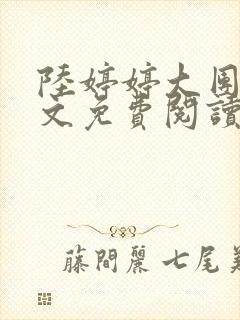 陸婷婷大團
文免費閱讀
藤間麗 七尾美